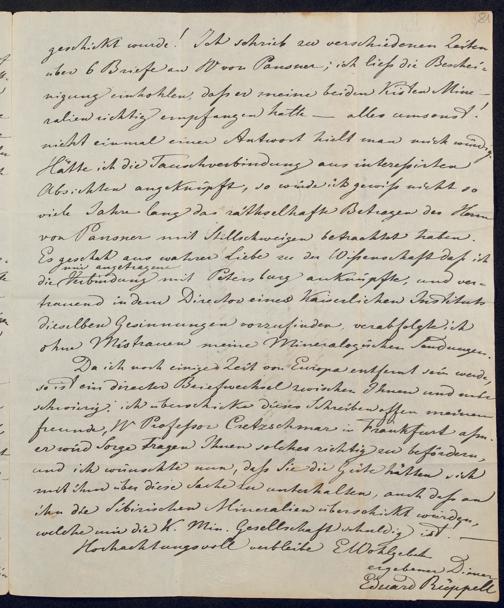 81
geschickt wurde! Ich schrieb zu verschiedenen Zeiten
über 6 Briefe an H von Pansner; ich ließ die Beschei-
nigung einhohlen, daß er meine beiden Kisten Mine-
ralien richtig empfangen hatte — alles umsonst!
nicht einmal einer Antwort hielt man mich würdig
Hätte ich die Tauschverbindung aus interessirten
Absichten angeknüpft, so würde ich gewiss nicht so
viele Jahre lang das räthselhafte Betragen des Herrn
von Pansner mit Stillschweigen betrachtet haben.
Es geschah aus wahrer Liebe zu der Wissenschaft daß ich
mir angetragene
die Verbindung mit Petersburg anknüpfte, und ver-
trauend in dem Director eines Kaiserlichen Instituts
dieselben Gesinnungen vorzufinden, verabfolgte ich
ohne Mistrauen meine Mineralogischen Sendungen.
Da ich noch einige Zeit von Europa entfernt sein werde,
so ist ein directer Briefwechsel zwischen Ihnen und mir
schwierig; ich überschicke dieses Schreiben offen meinem
freunde, H Professor Cretzschmar in Frankfurt a/m.
er wird Sorge tragen Ihnen solches richtig zu befördern,
und ich wünschte nun, daß Sie die Güte hätten, sich
mit ihm über diese Sache zu unterhalten, auch daß an
ihn die Sibirischen Mineralien überschickt würden,
welche mir die K. Min. Gesellschaft schuldig ist. —
Hochachtungsvoll verbleibe E Wohlgeb
ergebener Diener
Eduard Rüppell